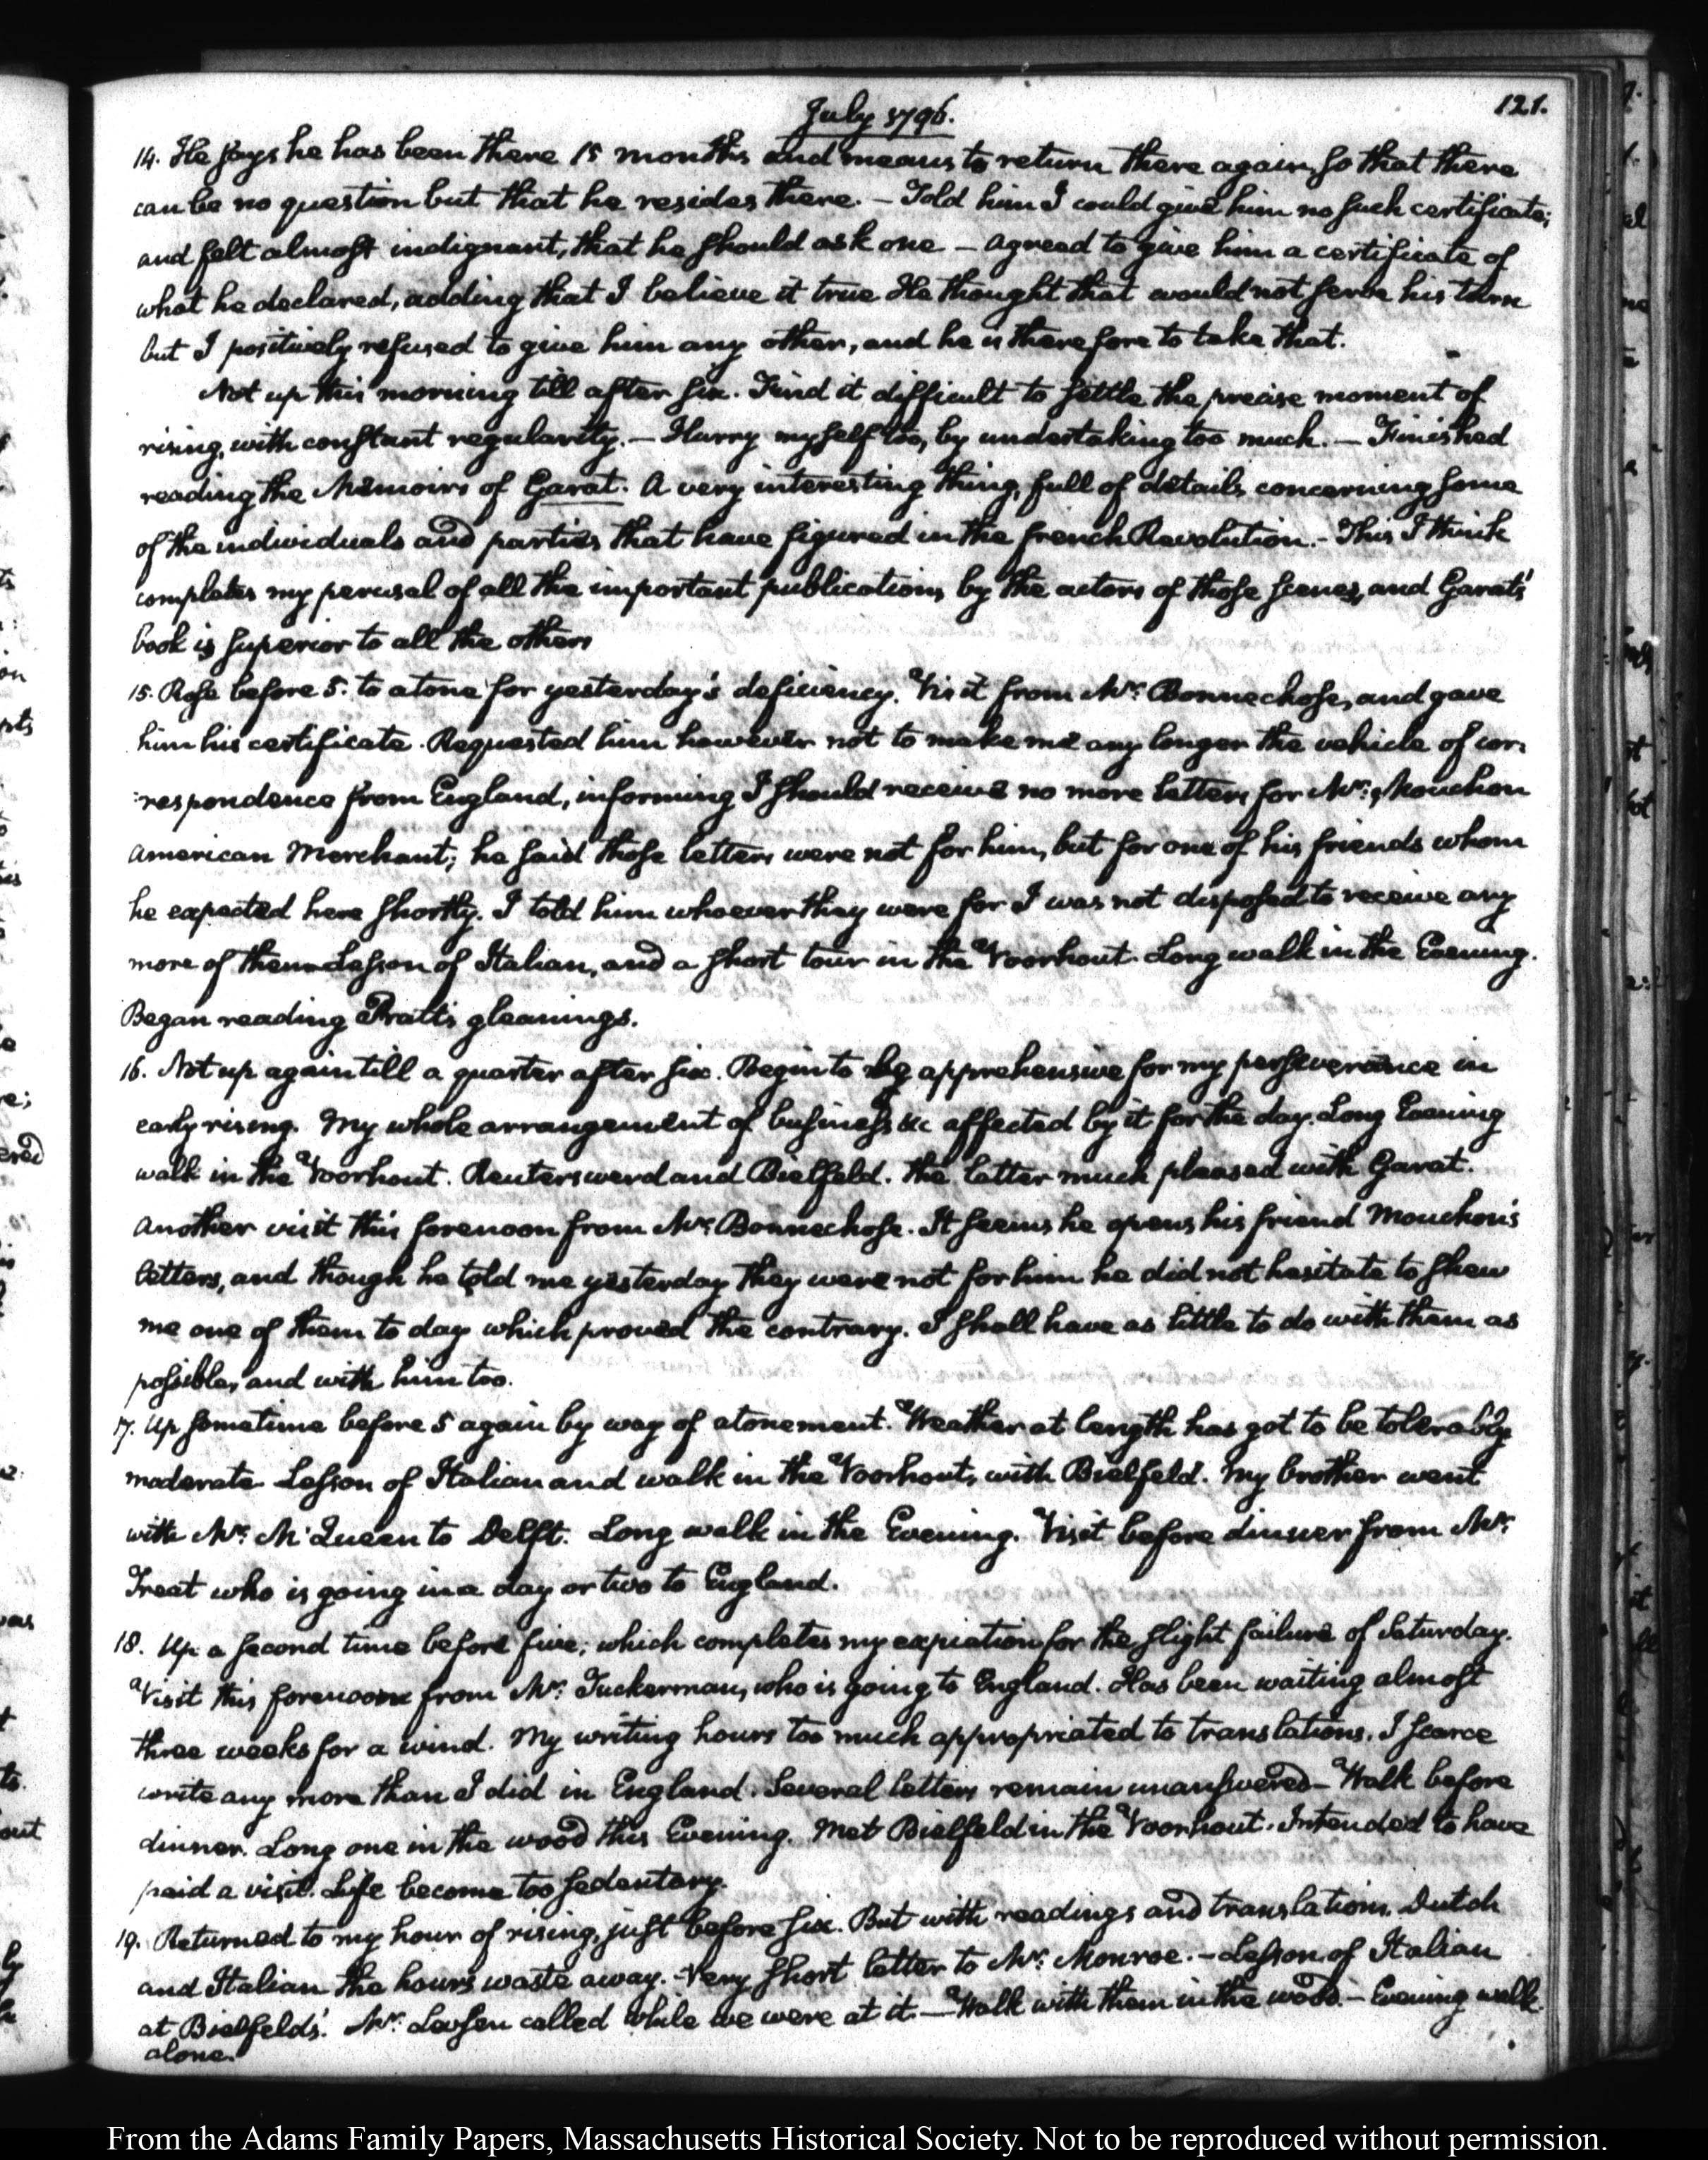 July 1796.
121.
14. He says he has been there 15 months and means to return there again, so that there
can be no question but that he resides there. — Told him I could give him no such certificate;
and felt almost indignant, that he should ask one — agreed to give him a certificate of
what he declared, adding that I believe it true He thought that would not serve his turn
but I positively refused to give him any other, and he is therefore to take that.
Not up this morning till after six. Find it difficult to settle the precise moment of
rising, with constant regularity. — Hurry myself too, by undertaking too much. — Finished
reading the Memoirs of Garat. A very interesting thing, full of details concerning some
of the individuals and parties that have figured in the french Revolution. - This I think
completes my perusal of all the important publications by the actors of those scenes, and Garat's
book is superior to all the others
15. Rose before 5. to atone for yesterday's deficiency. Visit from Mr: Bonnechose, and gave
him his certificate. Requested him however not to make me any longer the vehicle of cor-
:respondence from England, informing I should receive no more letters for Mr: Mouchon
American Merchant; he said those letters were not for him, but for one of his friends whom
he expected here shortly. I told him whoever they were for I was not disposed to receive any
more of them — Lesson of Italian, and a short tour in the Voorhout. Long walk in the Evening.
Began reading Pratt's gleanings.
16. Not up again till a quarter after six. Begin to be apprehensive for my perseverance in
early rising. My whole arrangement of business &c affected by it for the day. Long Evening
walk in the Voorhout. Reuterswerd and Bielfeld. The latter much pleased with Garat.
Another visit this forenoon from Mr: Bonnechose. It seems he opens his friend Mouchon's
letters, and though he told me yesterday they were not for him he did not hesitate to shew
me one of them to day which proved the contrary. I shall have as little to do with them as
possible, and with him too.
17. Up sometime before 5 again by way of atonement. Weather at length has got to be tolerably
moderate. Lesson of Italian and walk in the Voorhout, with Bielfeld. My brother went
with Mr: McQueen to Delft. Long walk in the Evening. Visit before dinner from Mr:
Treat who is going in a day or two to England.
18. Up a second time before five; which completes my expiation for the slight failure of Saturday.
Visit this forenoon from Mr: Tuckerman, who is going to England. Has been waiting almost
three weeks for a wind. My writing hours too much appropriated to translations. I scarce
write any more than I did in England. Several letters remain unanswered — Walk before
dinner. Long one in the wood this Evening. Met Bielfeld in the Voorhout. Intended to have
paid a visit. Life become too sedentary.
19. Returned to my hour of rising, just before six. But with readings and translations, Dutch
and Italian the hours waste away. - Very short letter to Mr: Monroe. - Lesson of Italian
at Bielfeld's. Mr: Levsen called while we were at it. — Walk with them in the wood. — Evening walk
alone.
From the Adams Family Papers, Massachusetts Historical Society. Not to be reproduced without permission.